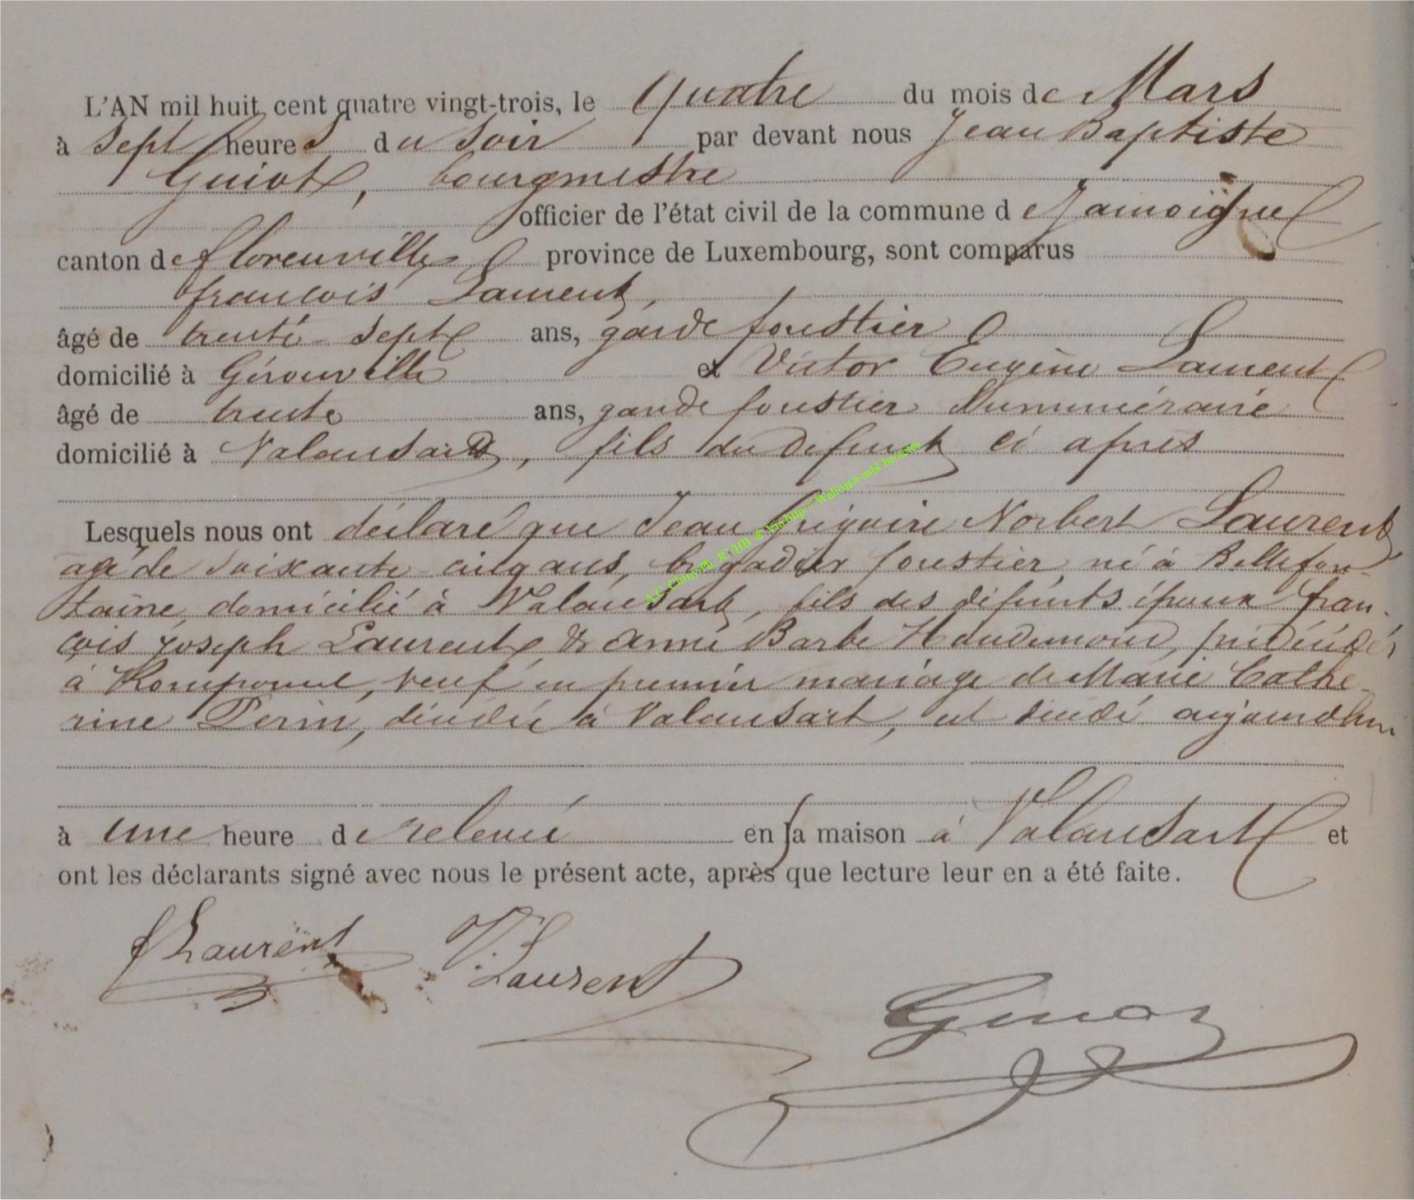 L'AN mil huit cent quatre vingt-trois, le Quatre du mois de Mars
à Sept heures du Soir par devant nous Jean Baptiste
Guiot, bourgmestre
officier de l'état civil de la commune de Jamoigne
canton de florenville province de Luxembourg, sont comparus
françois Laurent,
âgé de trente sept ans, garde forestier
domicilié à Gérouville et Victor Eugène Laurent
âgé de trente ans, garde forestier Surnuméraire
domicilié à Valansart, fils du défunt ci après
Lesquels nous ont déclaré que Jean Grégoire Norbert Laurent
agé de soixante cinq ans, brigadier forestier né à Bellefon-
taine, domicilié à Valansart, fils des défunts époux fran-
çois joseph Laurent & anne Barbe décédés
à veuf en premier mariage de Marie Cathe-
rine Perin, décédée à Valansart, est décédé aujourdhui
à une heure de relevée en sa maison à Valansart et
ont les déclarants signé avec nous le présent acte, après que lecture leur en a été faite.
f Laurent V. Laurent
Guiot